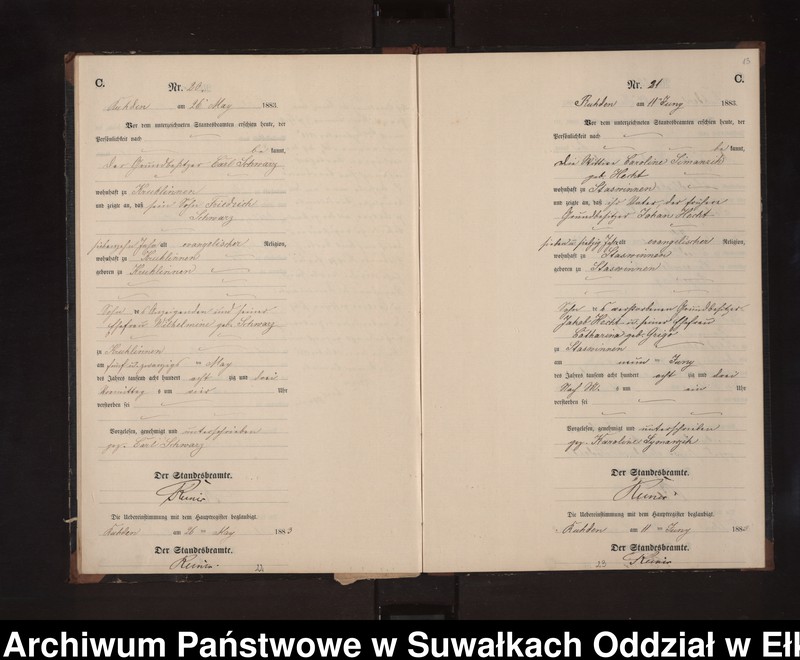 C.
Nr. 20.
Ruhden am 26 May 1883.
Vor dem unterzeichneten Standesbeamten erschien heute, der
Persönlichkeit nach
be kannt,
der Grundbesitzer Carl Schwarz
wohnhaft zu Kruklinnen
und zeigte an, daß sein Sohn Friedrich
Schwarz
Jahr alt evangelischer Religion,
wohnhaft zu Kruklinnen
geboren zu Kruklinnen
Sohn des Anzeigenden und seiner
Ehefrau Wilhelmine geb. Schwarz
zu Kruklinnen
am fünf und zwanzigsten May
des Jahres tausend acht hundert acht zig und drei
Vormittag s um vier Uhr
verstorben sei
Vorgelesen, genehmigt und unterschrieben
gez. Carl Schwarz
Der Standesbeamte.
Die Uebereinstimmung mit dem Hauptregister beglaubigt.
Ruhden am 26 ten May 1883
Der Standesbeamte.
Nr. 21
C.
Ruhden am 11 Juny 1883.
Vor dem unterzeichneten Standesbeamten erschien heute, der
Persönlichkeit nach
be kannt,
die Wittwe Caroline
geb. Hecht
wohnhaft zu Staswinnen
und zeigte an, daß ihr Vater, der frühere
Grundbesitzer Johan Hecht
sieben u. siebzig Jahr alt evangelischer Religion,
wohnhaft zu Staswinnen
geboren zu Staswinnen
Sohn des verstorbenen Grundbesitzer
Jakob Hecht u. seiner Ehefrau
Catharina geb. Grigo
zu Staswinnen
am neun ten Juny
des Jahres tausend acht hundert acht zig und drei
Nach Mi. s um ein Uhr
verstorben sei
Vorgelesen, genehmigt und unterschrieben
gez. Karoline
Der Standesbeamte.
Die Uebereinstimmung mit dem Hauptregister beglaubigt.
Ruhden am 11 ten Juny 1883
Der Standesbeamte.
Archiwum Państwowe w Suwałkach Oddział w Ełk